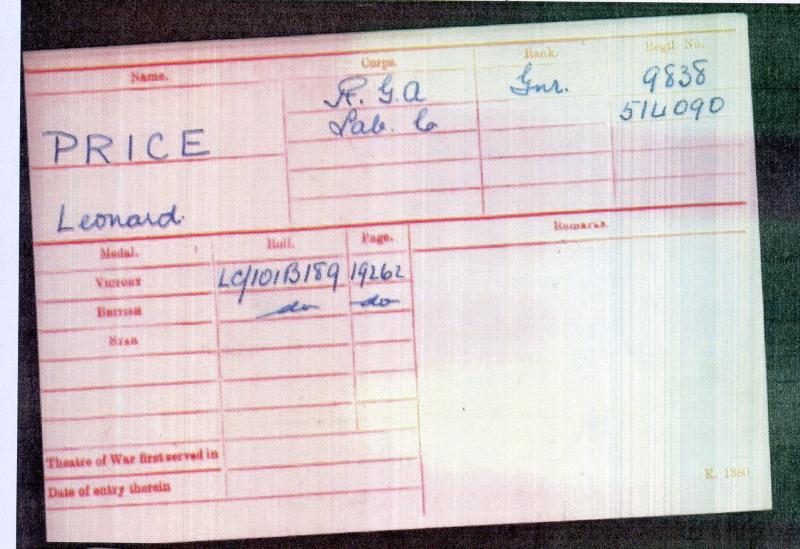 Name. Corps. Rank. Regtl. No.
R. G. A Gnr. 9838
Lab. Co 514090
PRICE
Leonard.
Medal. Roll. Page. Remarks.
VICTORY LC/101B189 19262
BRITISH do do
STAR
Theatre of War first served in
Date of entry therein
K. 1380